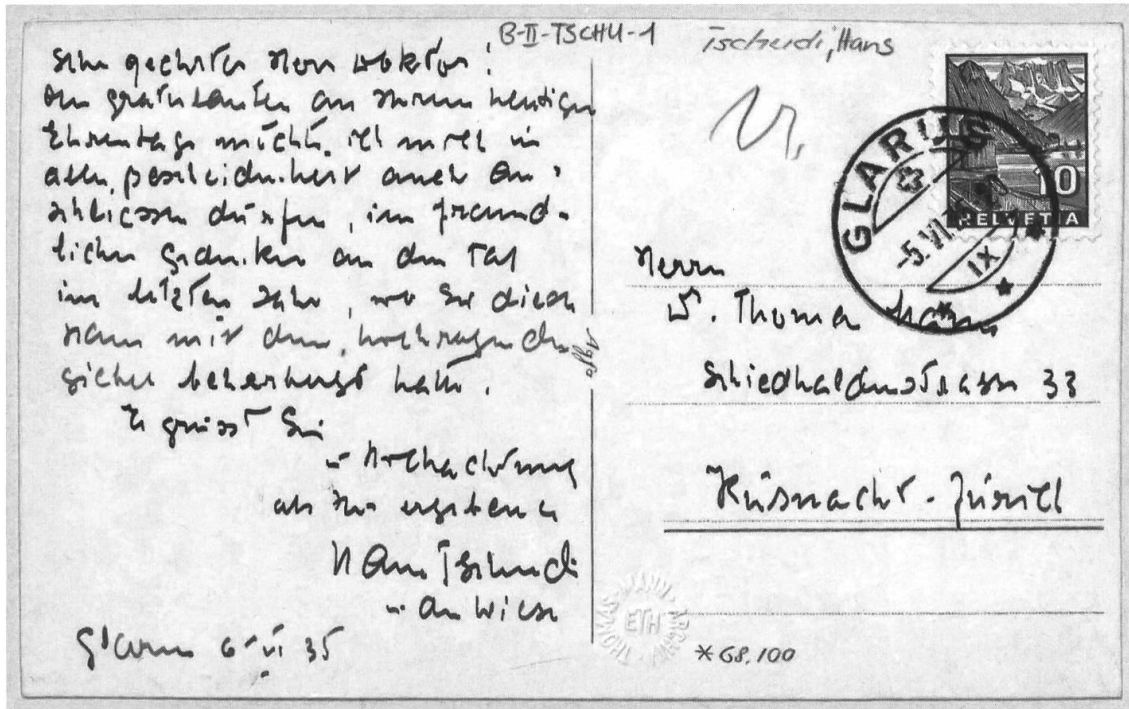 B-II-TSCHU-1
Tschudi, Hans
Sehr geehrter Herr Doktor!
Den Gratulanten an Ihrem heutigen
Ehrentage möchte ich mich in
aller Bescheidenheit auch an-
schliessen dürfen, im freund-
lichen Gedenken an den Tag
im letzten Jahr, wo Sie dieses
mit dem hochragenden
beherbergt hatte.
Es grüsst Sie
in Hochachtung
als Ihr ergebener
Hans Tschudi
in der Wiese
Glarus 6 VI 35
Agfa
GLARUS
-5.VI
IX
10
HELVETIA
Herrn
D. Thomas Mann
Schiedhaldenstrasse 33
Küsnacht-Zürich
THOMAS-MANN-ARCHIV
ETH
*G8.100